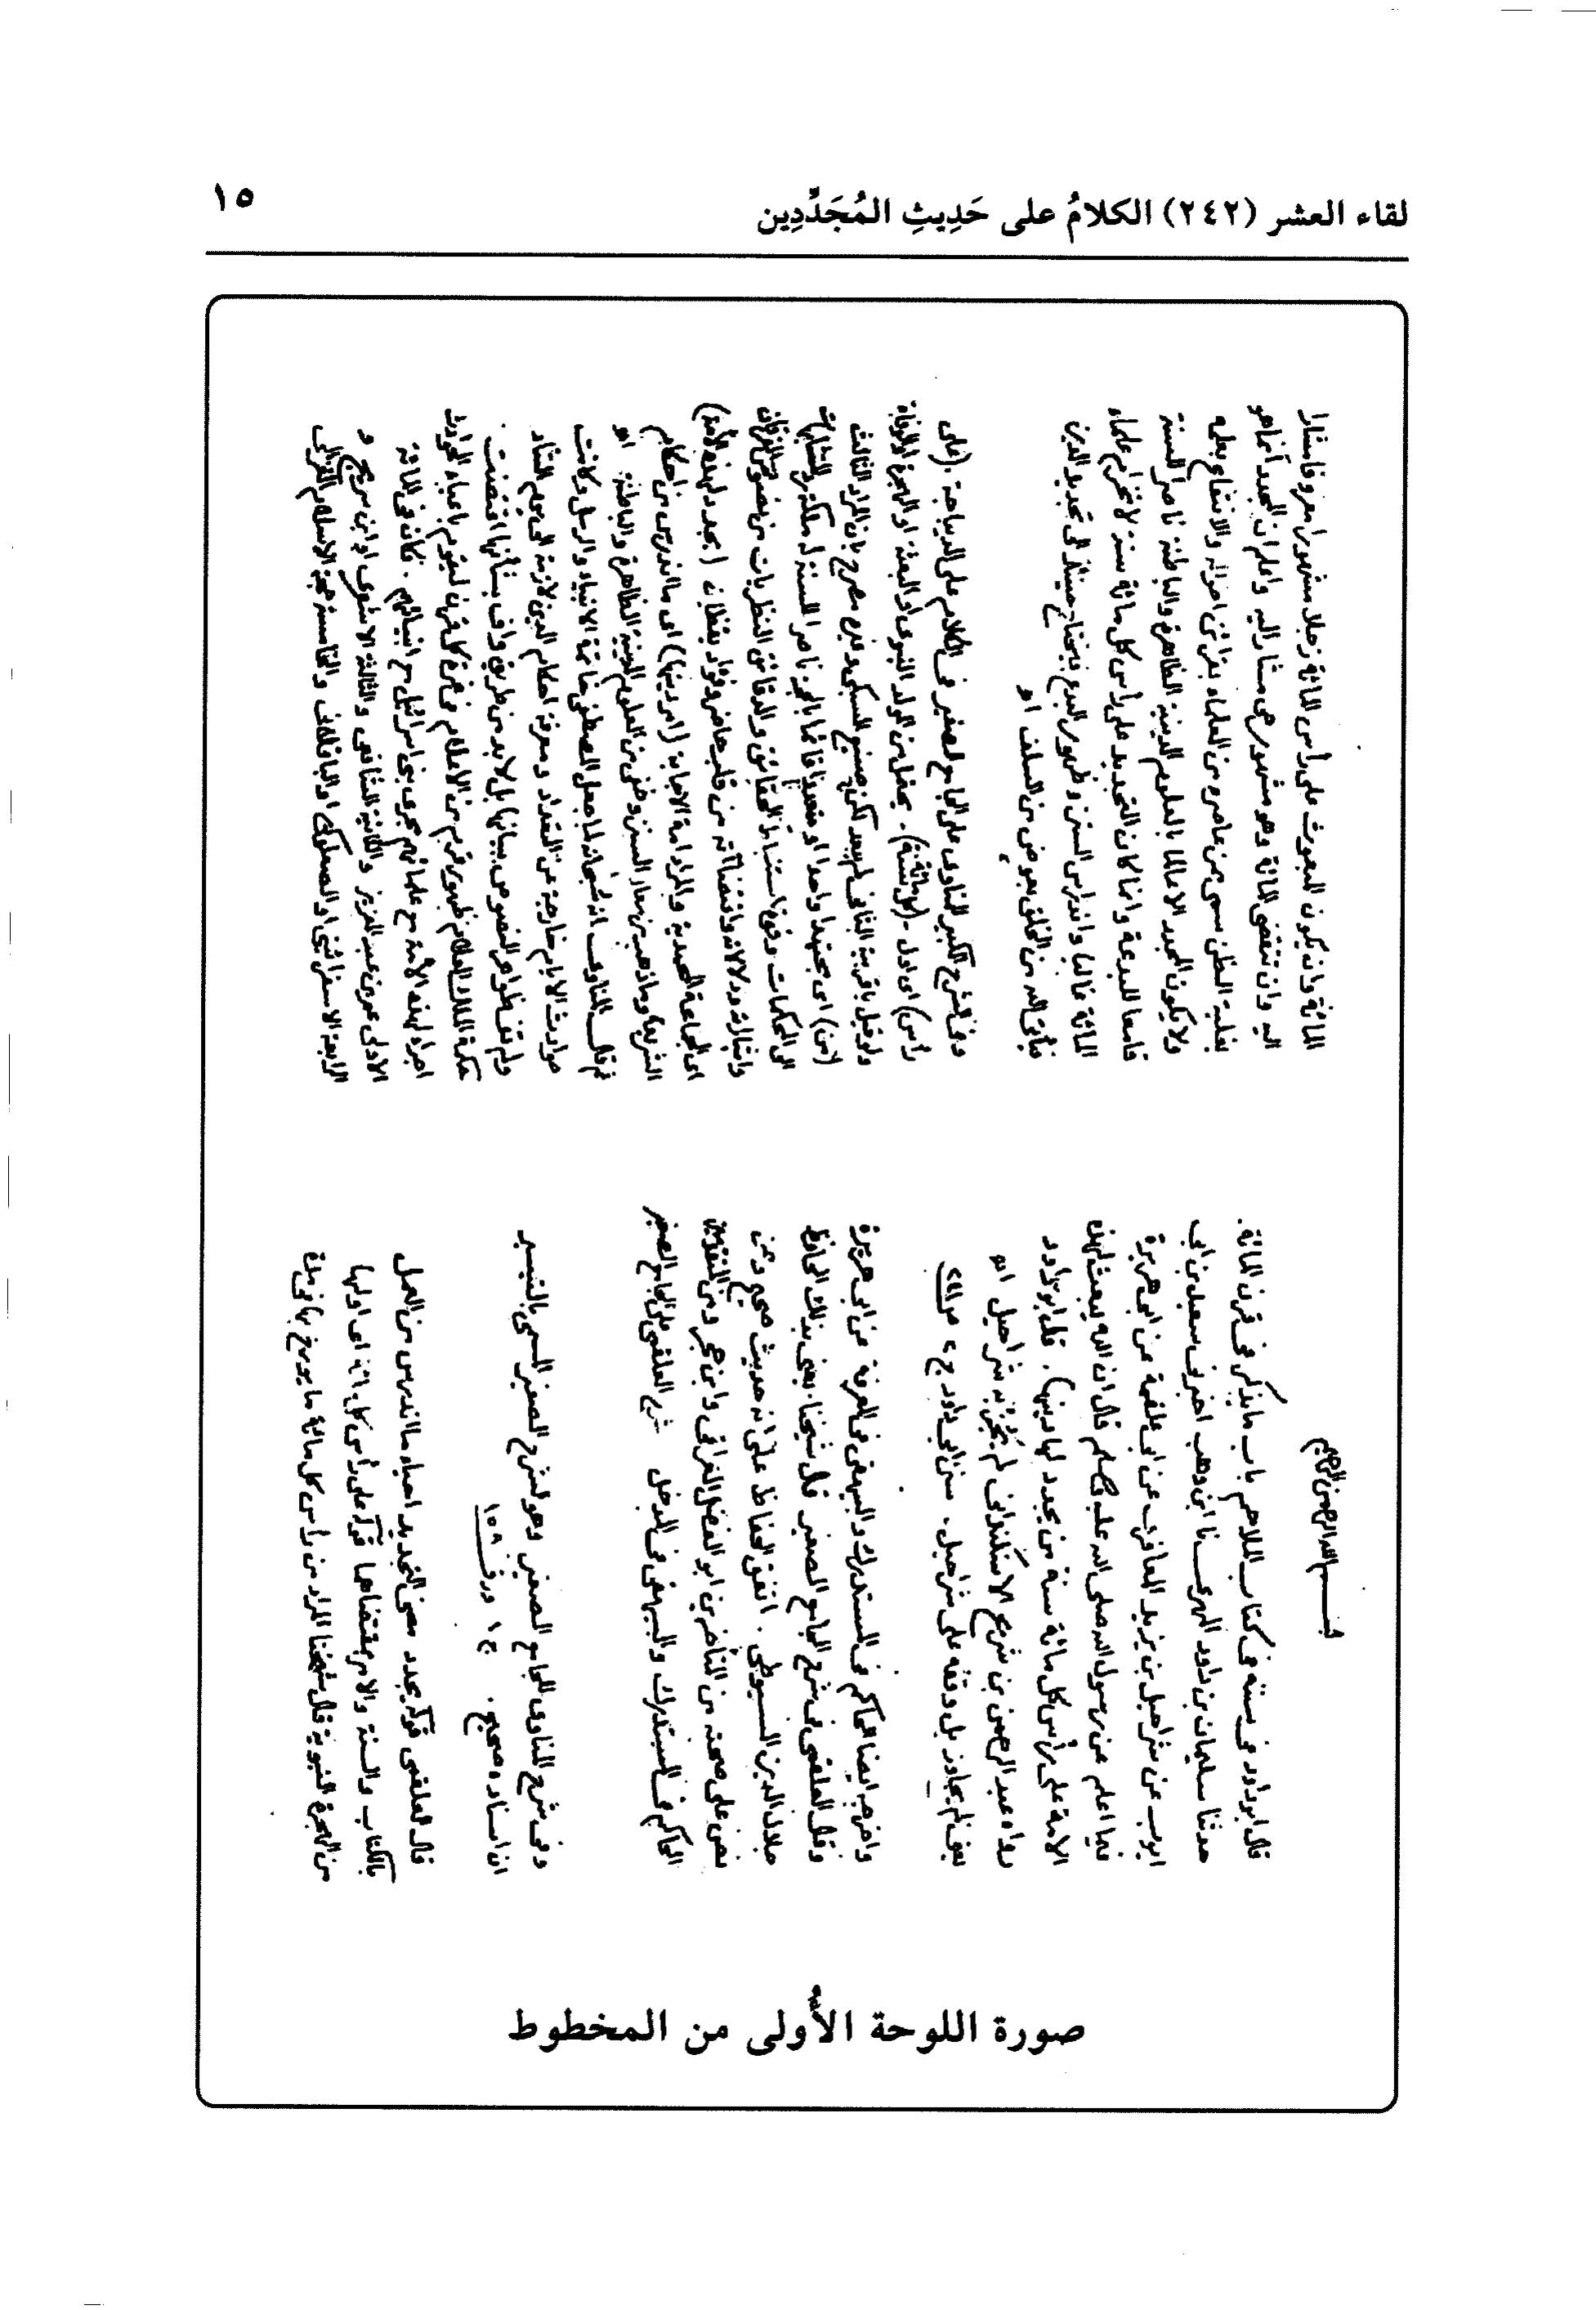 لقاء العشر (٢٤٢) الكلامُ على حَدِيثِ المُجَدِّدِين
١٥
بسم الله الرحمن الرحيم
قال ابو داود في سننه في كتاب الملاحم باب ما يذكر في قرن المائة.
حدثنا سليمان بن داود المهري نا ابن وهب اخبرني سعيد بن ابي
ايوب عن شراحيل بن يزيد المعافري عن ابي علقمة عن ابي هريرة
فيما اعلم عن رسول الله صلى الله عليه وسلم قال ان الله يبعث لهذه
الامة على رأس كل مائة سنة من يجدد لها دينها). قال ابو داود
رواه عبد الرحمن بن شريح الاسكندراني لم يجز به شراحيل اه
يعني لم يجاوز بل وقفه على شراحيل. سنن ابي داود ج٢
واخرجه ايضا الحاكم في المستدرك والبيهقي في المعرفة عن ابي هريرة
وقال العلقمي في شرح الجامع الصغير قال شيخنا يعني بذلك الحافظ
جلال الدين السيوطي. اتفق الحفاظ على انه حديث صحيح وممن
نص على صحته من المتأخرين ابو الفضل العراقي وابن حجر ومن المتقدمين
الحاكم في المستدرك والبيهقي في المدخل شرح العلقمي على الجامع الصغير
وفي شرح المناوي للجامع الصغير وهو لشرح الصغير المسمى بالتيسير
ان اسناده صحيح. ج١ ورقة ١٥٨
قال العلقمي قوله يجدد معنى التجديد احياء ما اندرس من العمل
بالكتاب والسنة والامر بمقتضاهما قوله على رأس كل مائة اي اولها
من الهجرة النبوية قال شيخنا المراد من رأس كل مائة ما يورخ بها في مدة
المائة وان يكون المبعوث على رأس المائة رجلا مشهورا معروفا مشارا
اليه وان تنقضي المائة وهو مشهور حي مشار اليه واعلم ان المجدد انما هو
بغلبة الظن ممن عاصره من العلماء بقرائن احواله والانتفاع بعلمه
ولا يكون المجدد الا عالما بالعلوم الدينية الظاهرة والباطنة ناصرا للسنة
قامعا للبدعة وانما كان التجديد على رأس كل مائة سنة لانخرام علماء
المائة غالبا واندراس السنن وظهور البدع فيحتاج حينئذ الى تجديد الدين
فيأتي الله من الخلق بعوض من السلف اه
وفي الشرح الكبير للمناوي على الجامع الصغير في الكلام على الديباجة. (على
رأس) اي اول - (كل مائة سنة) - يحتمل من المولد النبوي او البعثة او الهجرة او الوفاة
ولو قيل باقربية الثاني لم يبعد لكن صنيع السبكي وغيره مصرح بان المراد الثالث
(من) اي مجتهدا واحدا او متعددا قائما بالحجة ناصرا للسنة له ملكة رد المتشابهات
الى المحكمات وقوة استنباط الحقائق والدقائق النظريات من نصوص الفرقان
واشاراته ودلالاته واقتضاآته من قلب حاضر وفؤاد يقظان (يجدد لهذه الأمة)
اي الجماعة المحمدية والمراد امة الاجابة (امر دينها) اي ما اندرس من احكام
الشريعة وما ذهب من معالم السنن وخفي من العلوم الدينية الظاهرة والباطنة اه
ثم قال المناوي انه سبحانه لما جعل المصطفى خاتمة الانبياء والرسل وكانت
حوادث الايام خارجة عن التعداد ومعرفة احكام الدين لازمة الى يوم التناد
ولم تف ظواهر النصوص ببيانها بل لا بد من طريق واف بشأنها اقتضت
حكمة الملك العلام ظهور قرم من الاعلام في غرة كل قرن ليقوم باعباء الحوادث
اجراء لهذه الأمة مع علمائهم مجرى بني اسرائيل مع انبيائهم. فكان في المائة
الاولى عمر بن عبد العزيز والثانية الشافعي والثالثة الاشعري او ابن سريج و
الرابعة الاسفرائيني او الصعلوكي او الباقلاني والخامسة حجة الاسلام الغزالي
صورة اللوحة الأولى من المخطوط